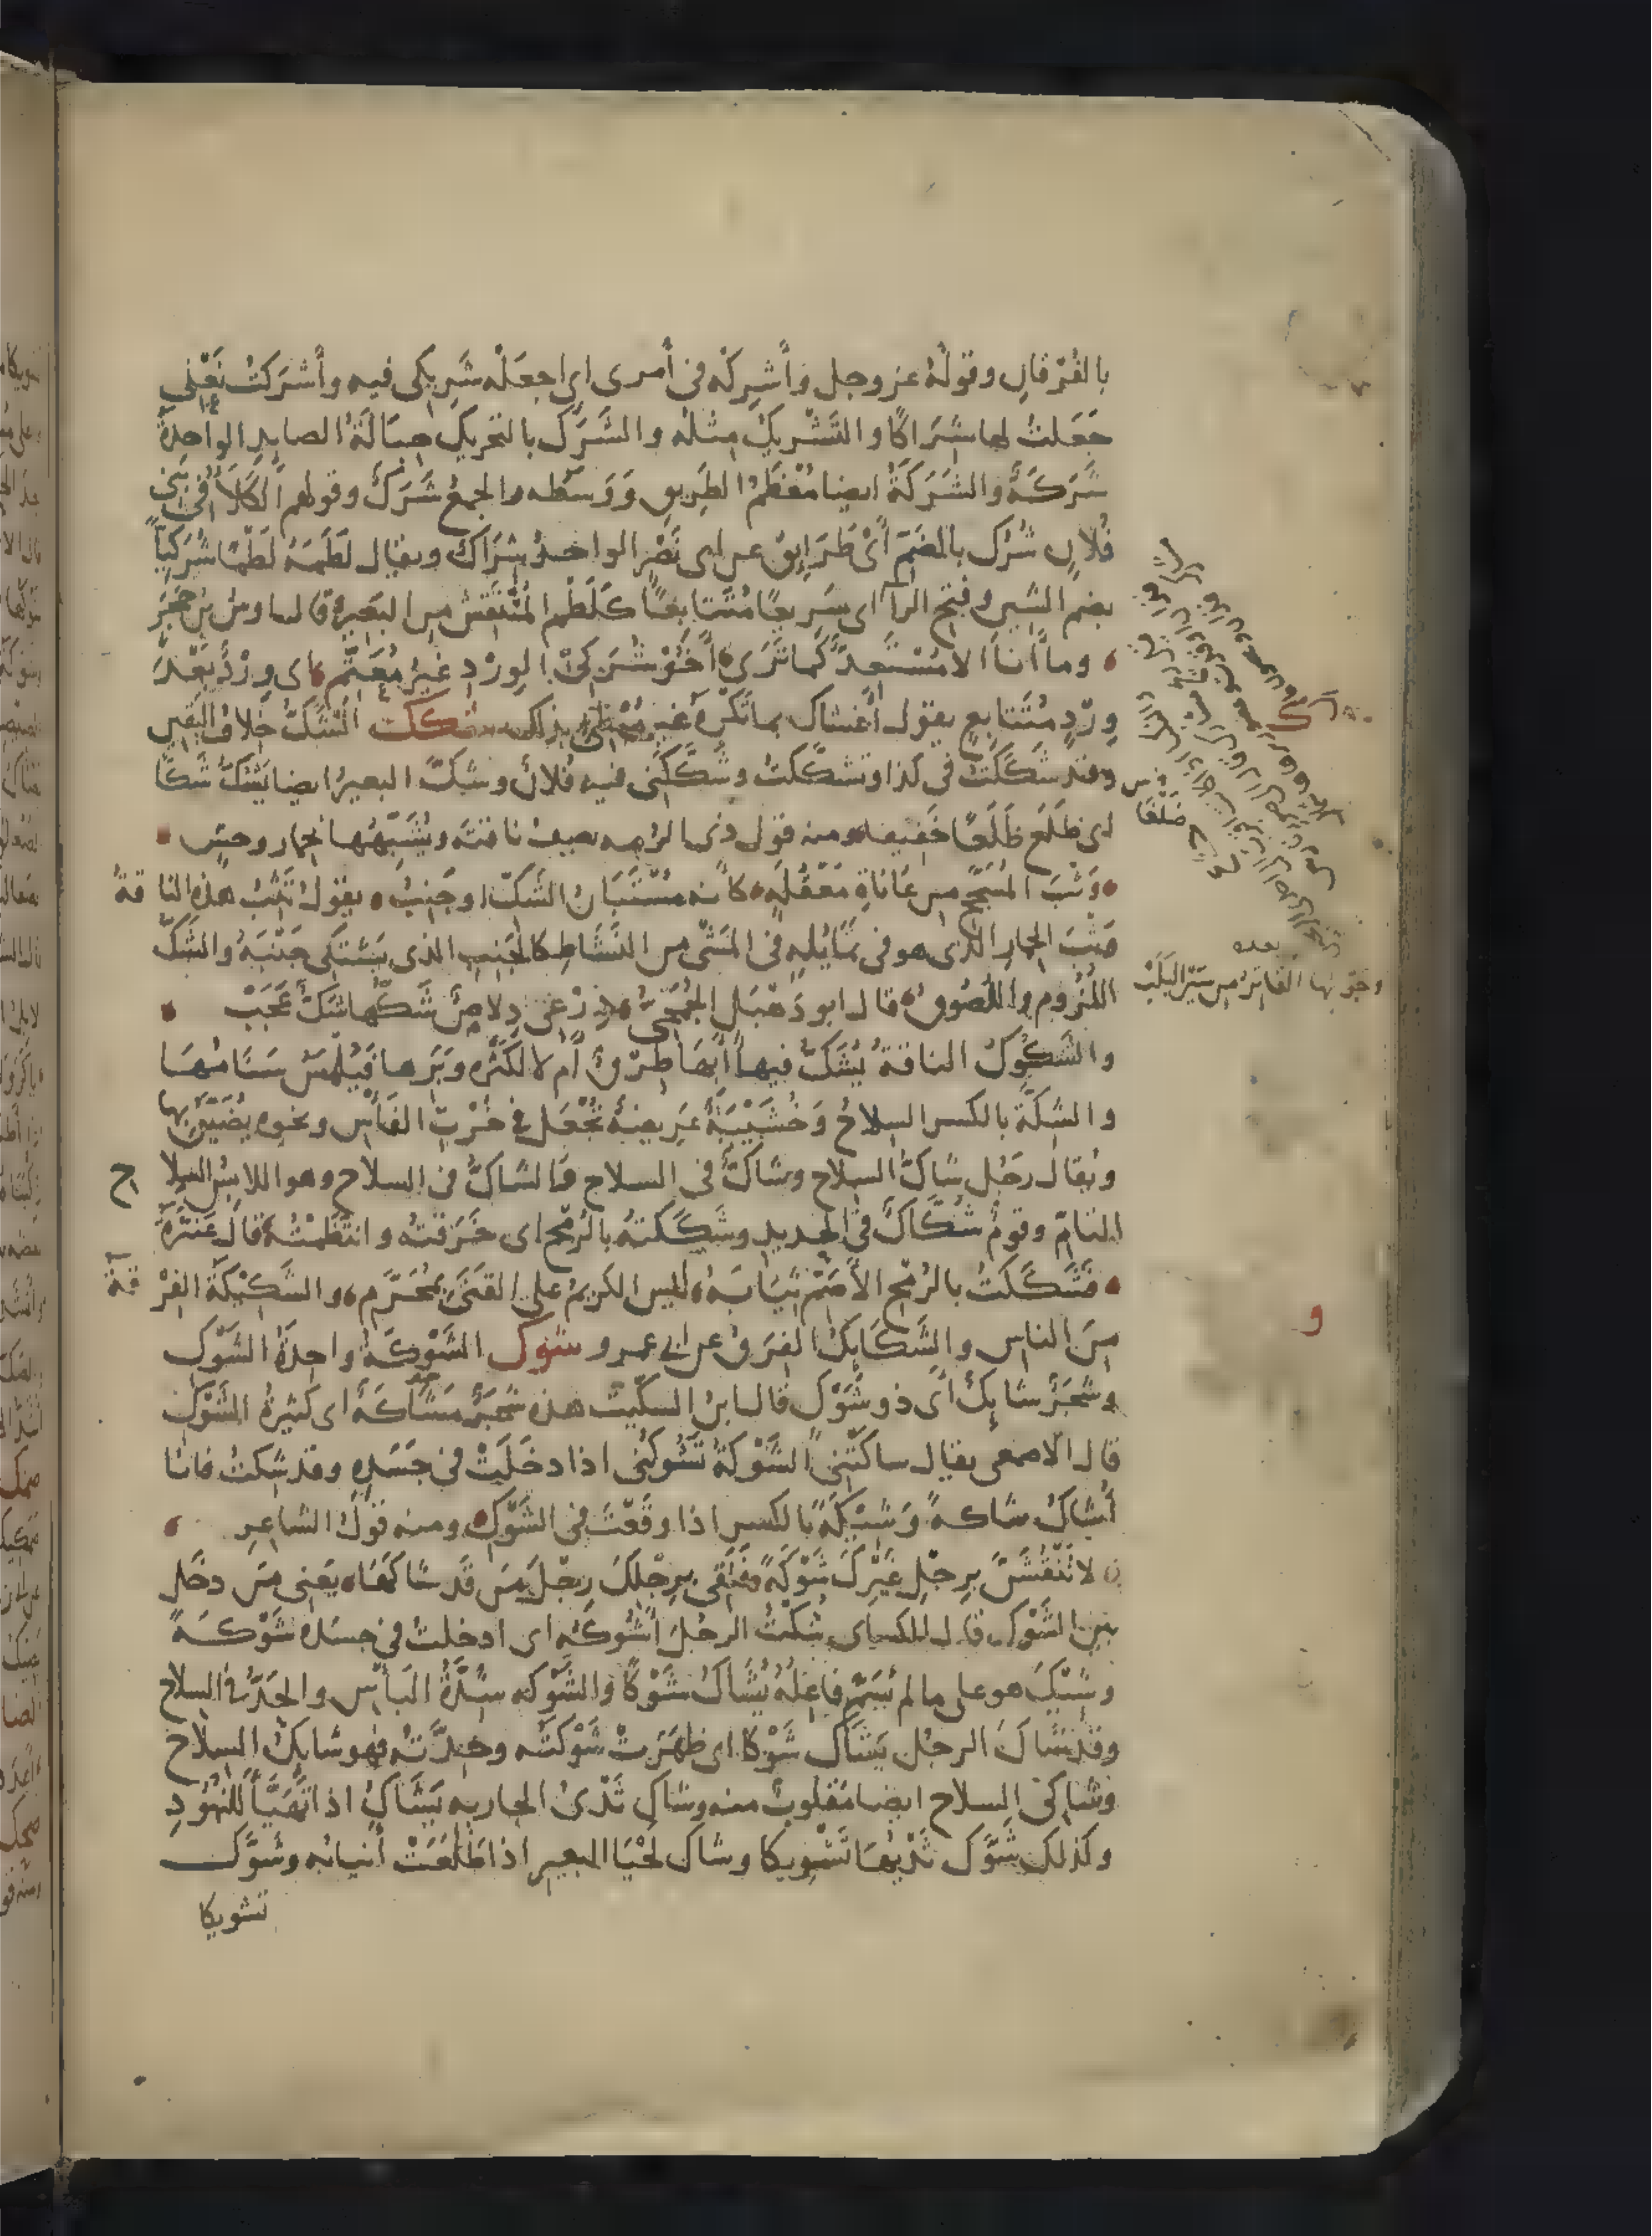 بالفُرْقانِ وقولُهُ عز وجل وَأَشْرِكْه فى أَمْرى اى اجعَلْه شَرِيكى فيه وأَشْرَكتُ نَعْلى
جَعَلتُ لها شِرَاكًا والتَّشْرِيكُ مِثلُه والشَّرَكُ بالتحريك حِبَالَةُ الصايد الواحدةُ
شَرَكَةٌ والشَرَكَةُ ايضا مُعْظَمُ الطَريق وَوَسَطُه والجمعُ شَرَكٌ وقولهم الكَلأُ فى بَنى
فُلانٍ شُرُك بالضَمّ أَىْ طَرَايِقُ عن ابى نَصْر الواحدُ شِرَاكٌ ويقال لَطَمَهُ لَطْمًا شُرَكِيًّا
بضم الشين وفتح الرآ اى سَريعًا مُتَتابعًا كَلَطْمِ المُنْتَقِش من البَعير قال اوس بن حَجَر
وما أنا الا مُسْتَعِدٌّ كما تَرَى أَخُو شُرَكىِّ الوِرْدِ غيرُ مُعَتِّمِ اى وِرْدٌ بَعْدَ
وِرْدٍ مُتَتابعٍ يقول أَغْشاك بما تَكْرَهُ غير مُبْطِئ بذلك شكك الشَّكُّ خِلافُ اليَقين
وقد شَكَكْتُ فى كذا وتشكّكتُ وشَكَّكَنى فيه فُلانٌ وشَكَّ البعيرُ ايضا يَشُكُّ شَكًّا
اى ظَلَعَ ظَلْعًا خَفيفا ومنه قول ذى الرُمه يصف ناقتَه ويُشَبّهُها بحمار وحشٍ
وَثْبَ المُسَحَّجِ من عَانَاتِ مَعْقُلَةٍ كأنه مُسْتَبَانُ الشَكِّ او جَنِبُ يقول تَثِبُ هذه الناقةُ
وَثْبَ الحمار الذى هو فى تَمَايُلِهِ فى المَشْى من النَّشَاطِ كالجَنِبِ الذى يَشتَكى جَنْبَهُ والشَكُّ
اللُّزُوم واللُصُوقُ قال ابو دَهْبَل الجُمَحِىُّ دِرْعى دِلاصٌ شَكُّها شَكٌّ عَجَبْ
والشَّكُوكُ الناقةُ يُشَكُّ فيها أَبِها طِرْقٌ أم لا لكَثْرَه وَبَرها فَيُلْمَسُ سَنَامُهَا
والشِكَّةُ بالكسر السلاحُ وَخُشَيْبَةٌ عَرِيضةٌ تُجْعَل فى خُرْتِ الفَأسِ ونحوه يُضَيَّقُ بها
ويُقال رجُل شَاكُّ السلاح وشَاكٌّ فى السلاح والشاكُّ فى السلاح وهو اللابِسُ السِلاح
التامَّ وقومٌ شُكَّاكٌ فى الحديد وشَكَكتهُ بالرُمح اى خَزَقتُه وانتَظَمْتُهُ قال عَنتَرَةُ
فَشَكَكتُ بالرُمْح الأَصَمِّ ثِيَابَهُ ليس الكريمُ على القَنَى بِمُحَرَّمِ والشَكِيْكَةُ الفِرْقةُ
مِنَ الناس والشَكَايكُ الفِرَقُ عن ابى عمرو شوك الشَّوْكَةُ واحدةُ الشَّوْكِ
وشَجَرٌ شايكٌ أى ذو شَوْكٍ قال ابن السكّيت هذه شَجَرٌ مَشَاكَةٌ اى كثيرةُ الشَوْكِ
قال الاصمعى يقال شاكَتْنى الشَّوْكةُ تَشُوكُنى اذا دخَلَتْ فى جَسَدِهِ وقد شِكتُ فانا
أَشَاكُ شاكةً وَشِيْكَةً بالكسر اذا وقَعْتَ فى الشَّوْكِ ومنه قولُ الشاعِرِ
لا تَنْقُشَنَّ بِرِجْلِ غَيْرِكَ شَوْكَةً فَتَقِى بِرِجْلِكَ رِجْلَ مَنْ قَد شَاكَهَا يَعنى مَن دخَل
بَين الشَّوْك قال الكساى شُكْتُ الرجُلَ أَشُوكُه اى ادخلتُ فى جسده شَوْكَةً
وشِيْكَ هو على مالم يُسَمَّ فاعِلُهُ يُشَاكُ شَوْكًا والشَّوْكه شِدَّةُ البَأس والحَدُّ فى السلاح
وقد شَاكَ الرجُل يَشَاك شَوْكًا اى ظهَرَتْ شَوْكَتُه وحِدَّتهُ فهو شايكُ السِلاح
وشاكى السلاح ايضا مَقْلُوبٌ منه وشاك ثَدْىُ الجاريه يَشَاكُ اذا تَهَيَّأَ لِلنُّهُودِ
وكذلك شَوَّك ثَدْيُهَا تَشْوِيكًا وشاك لَحْيَا البعير اذا طَلَعَتْ أنيابُه وشَوَّك
تشويكا
ضَلْعًا
بعده
و